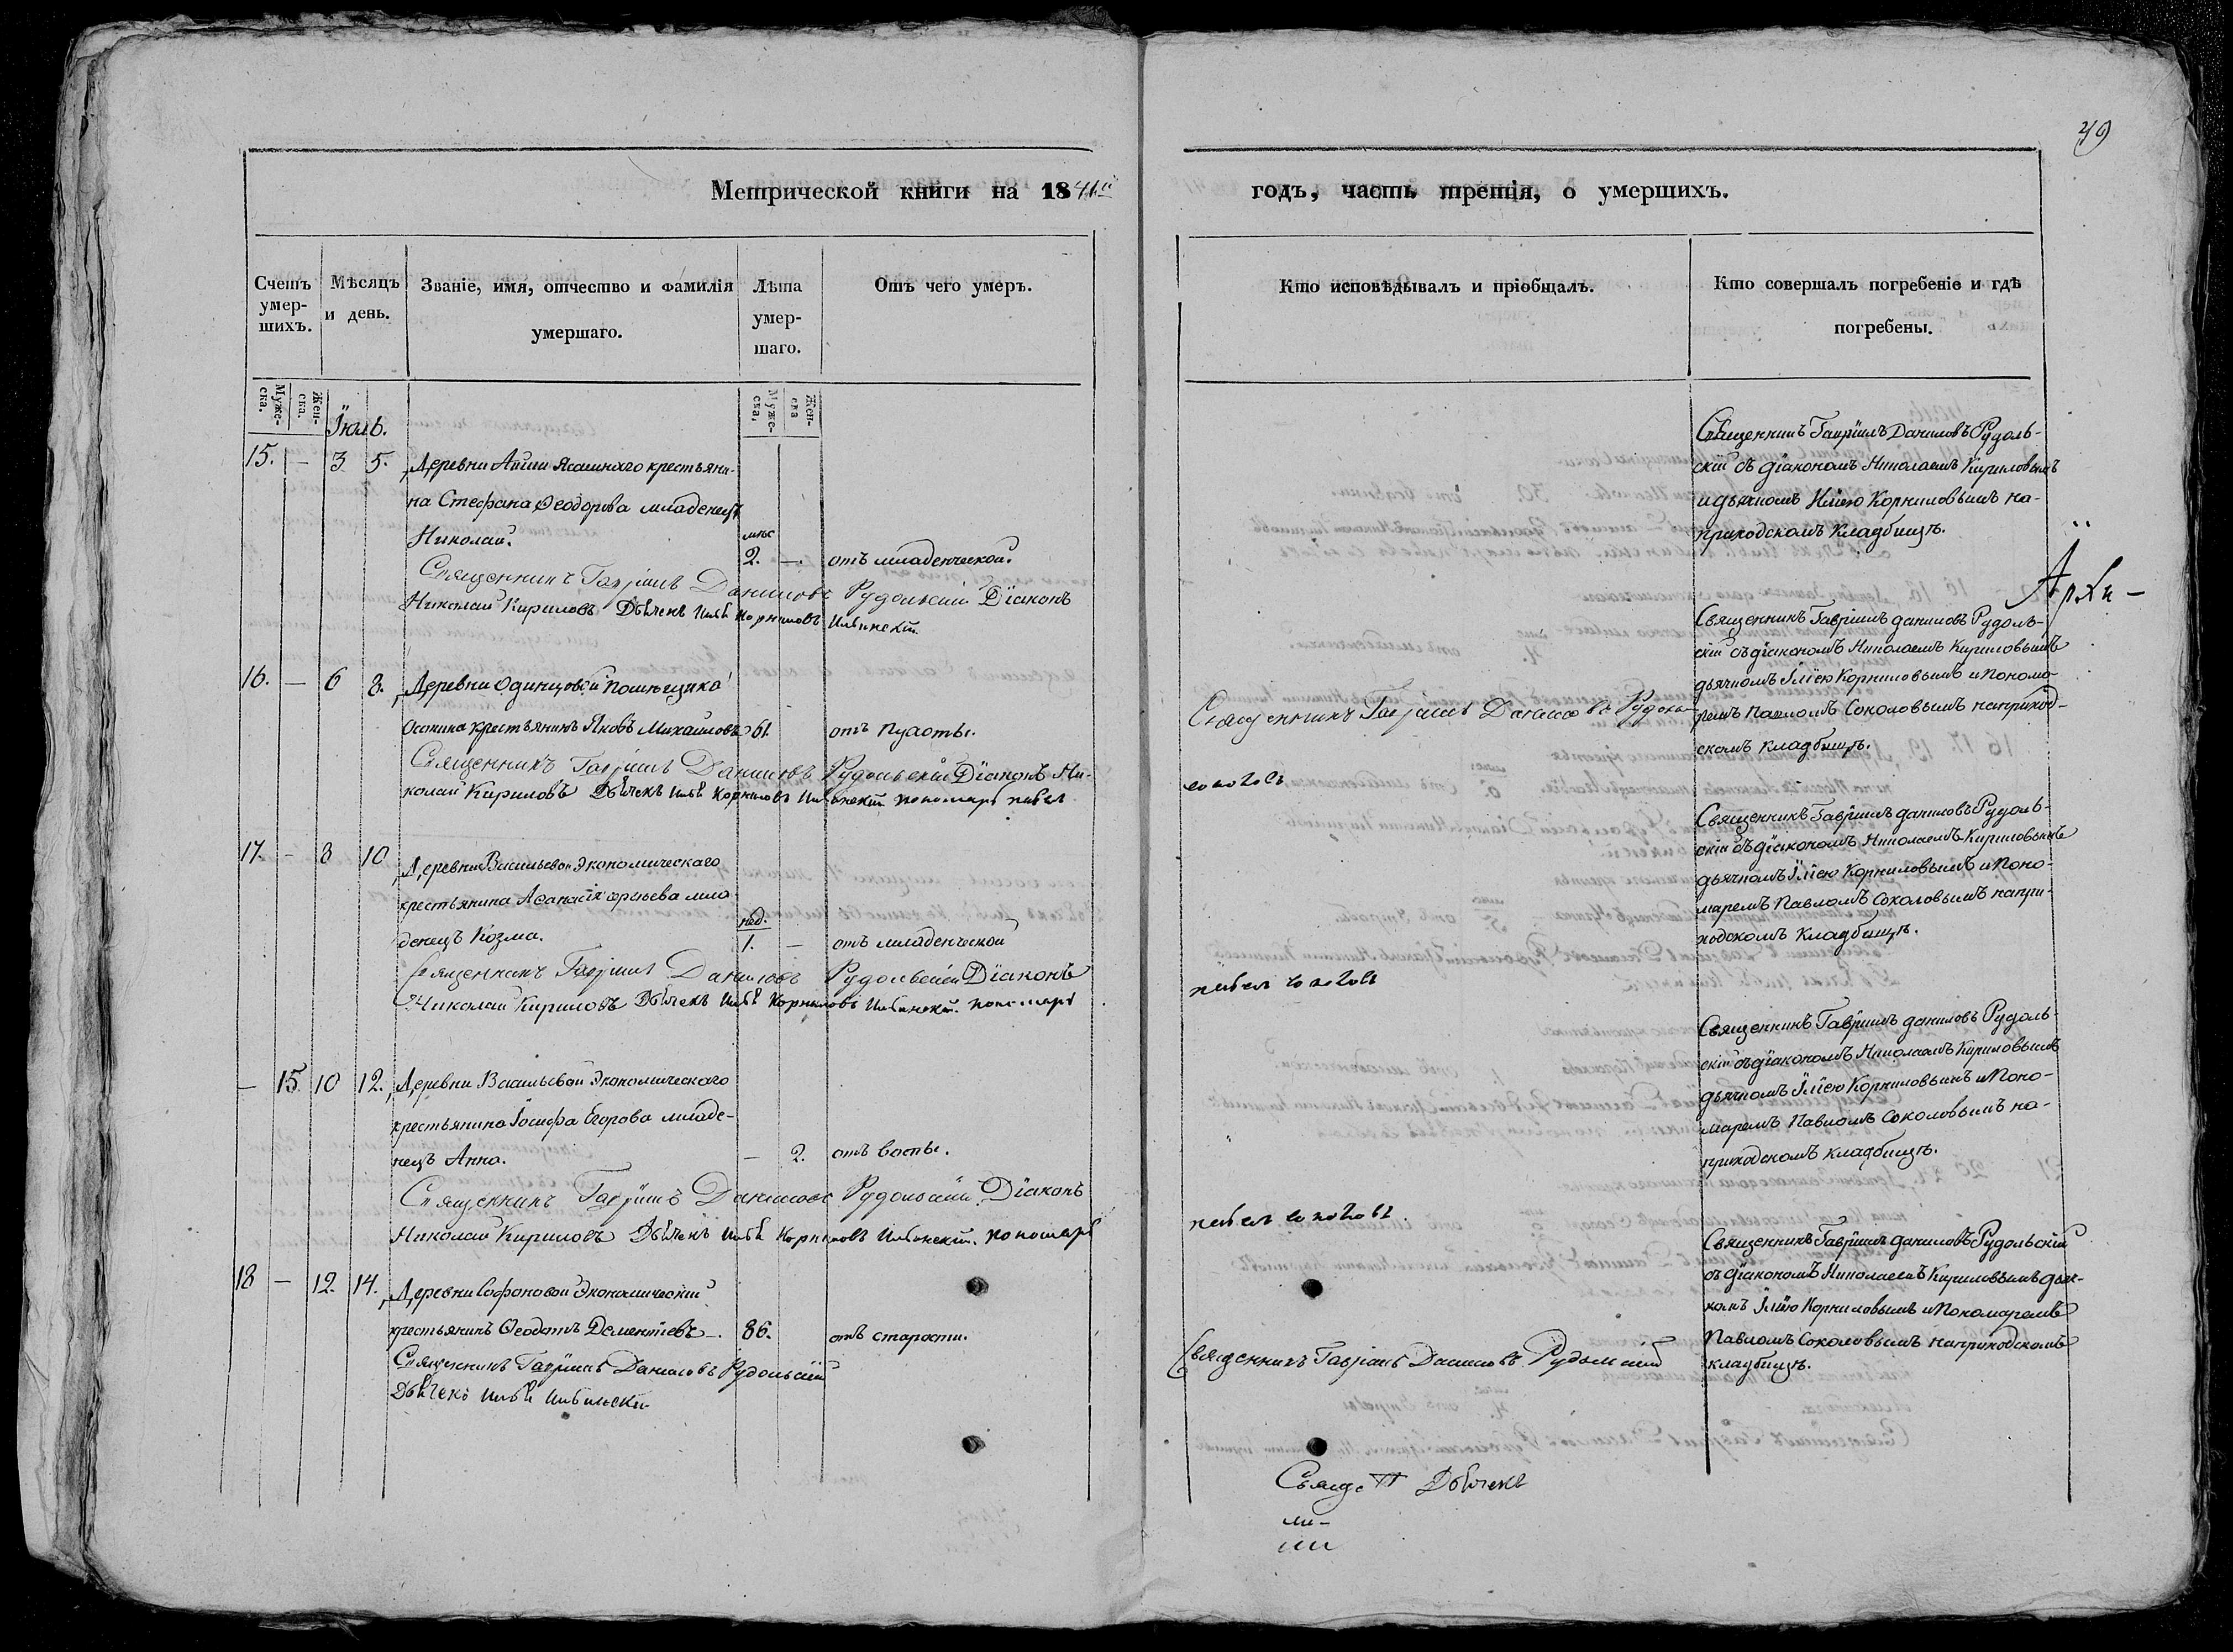 49
Метрической книги на 1841й
годъ, часть третія, о умершихъ.
Счетъ умер-
шихъ.
Мѣсяцъ
и день.
Званіе, имя, отчество и фамилія
умершаго.
Лѣта
умер-
шаго.
Отъ чего умеръ.
Кто исповѣдывалъ и пріобщалъ.
Кто совершалъ погребеніе и гдѣ
погребены.
Муже-
ска.
Жен-
ска.
Муже-
ска,
Жен-
ска
Іюль.
15. — 3 5. Деревни крестьяни-
на Стефана Ѳеодорова младенецъ
Николай.
мѣс
2. — отъ младенческой.
Священникъ Гавріилъ Даниловъ Рудольскій Діаконъ
Николай Кириловъ Дьячекъ Илья Корниловъ Ильинскій
Священникъ Гавріилъ Даниловъ Рудоль-
скій съ діакономъ Николаемъ Кириловымъ
и дьячкомъ Иліею Корниловымъ на-
приходскомъ кладбищѣ.
Архи-
16. — 6 8. Деревни Одинцовой помѣщика
Осокина крестьянинъ Яковъ Михайловъ 61. отъ
Священникъ Гавріилъ Даниловъ Рудольскій Діаконъ Ни-
колай Кириловъ Дьячекъ Илья Корниловъ Ильинскій пономарь павел
Священникъ Гавріилъ Даниловъ Рудоль
соколовъ
Священникъ Гавріилъ Даниловъ Рудоль-
скій съ діакономъ Николаемъ Кириловымъ
дьячкомъ Иліею Корниловымъ и Понома-
ремъ Павломъ Соколовымъ наприход-
скомъ кладбищѣ.
17. — 8 10 Деревни Васильевой Экономическаго
крестьянина Аѳанасія мла-
денецъ Козма.
нед.
1. — отъ младенческой
Священникъ Гавріилъ Даниловъ Рудольскій Діаконъ
Николай Кириловъ Дьячекъ Илья Корниловъ Ильинскій. пономарь
павел соколовъ
Священникъ Гавріилъ Даниловъ Рудоль-
скій съ діакономъ Николаемъ Кириловымъ
дьячкомъ Иліею Корниловымъ и Поно-
маремъ Павломъ Соколовымъ напри-
ходскомъ кладбищѣ.
— 15. 10 12. Деревни Васильевой Экономическаго
крестьянина Іосифа Егорова младе-
нецъ Анна.
— 2. отъ воспы.
Священникъ Гавріилъ Даниловъ Рудольскій Діаконъ
Николай Кириловъ Дьячекъ Илья Корниловъ Ильинскій. пономарь
павел соколовъ.
Священникъ Гавріилъ Даниловъ Рудоль-
скій съ діакономъ Николаемъ Кириловымъ
дьячкомъ Иліею Корниловымъ и Поно-
маремъ Павломъ Соколовымъ на-
приходскомъ кладбищѣ.
18 — 12. 14. Деревни Софоновой Экономическій
крестьянинъ Ѳеодотъ Дементіевъ —. 86. отъ старости.
Священникъ Гавріилъ Даниловъ Рудольскій
Дьячекъ Илья Ильински
Священникъ Гавріилъ Даниловъ Рудольскій
Священникъ Гавріилъ Даниловъ Рудольскій
съ діакономъ Николаемъ Кириловымъ дьяч-
комъ Иліею Корниловымъ и Пономаремъ
Павломъ Соколовымъ наприходскомъ
кладбищѣ.
Дьячекъ